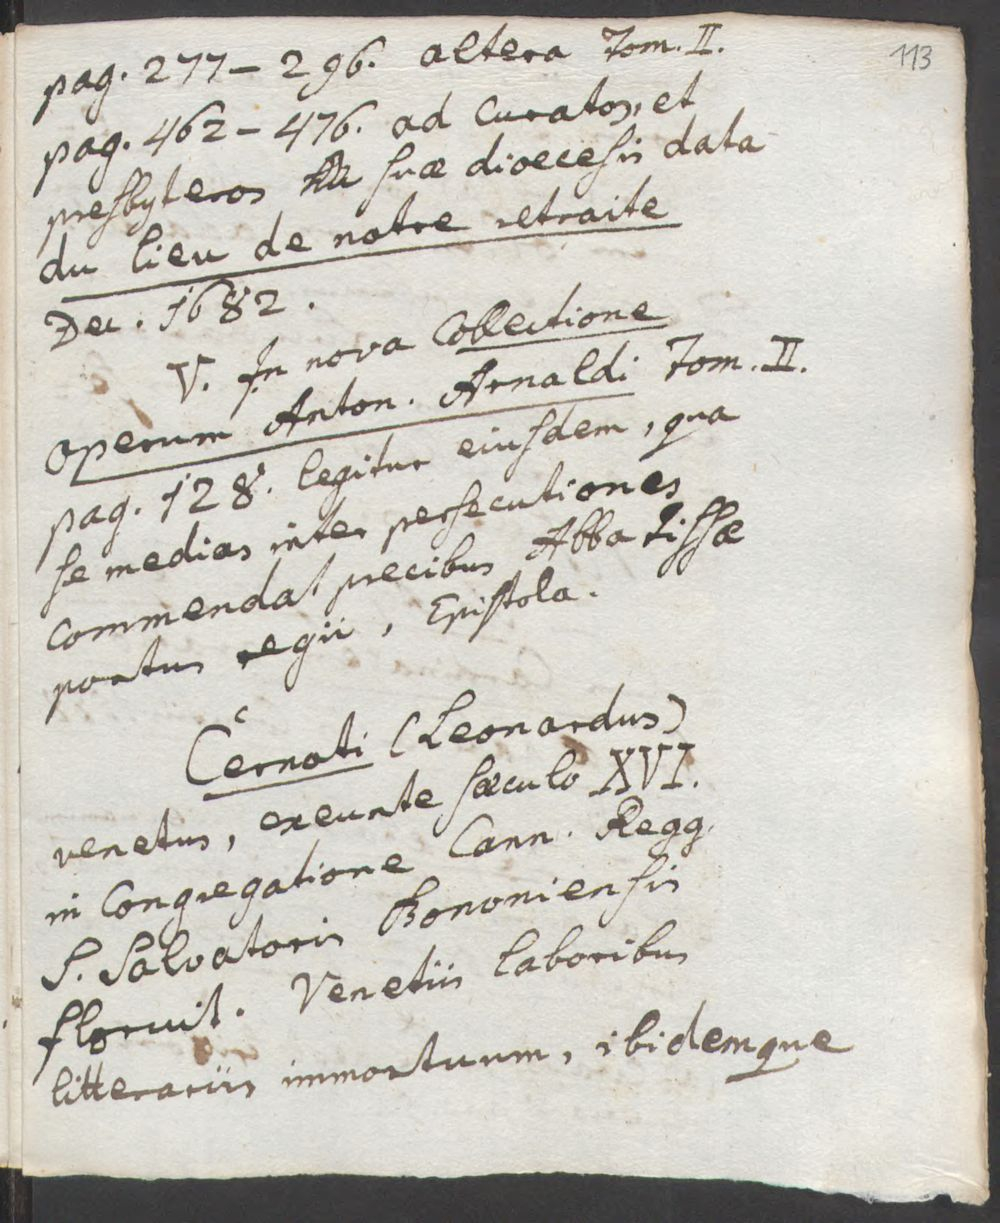 113
pag. 277 – 296. altera Tom. II.
pag. 462 – 476. ad Curatos, et
presbyteros suæ dioecesis data
du lieu de notre retraite
Dec. 1682.
V. In nova Collectione
operum Anton. Arnaldi Tom. II.
pag. 128. legitur eiusdem, qua
se medias inter persecutiones
commendat precibus Abbatissæ
portus regii, Epistola.
Cernoti (Leonardus)
venetus, exeunte sæculo XVI.
in Congregatione Cann. Regg.
S. Salvatoris Bononiensis
floruit. Venetiis laboribus
litterariis immortuum, ibidemque